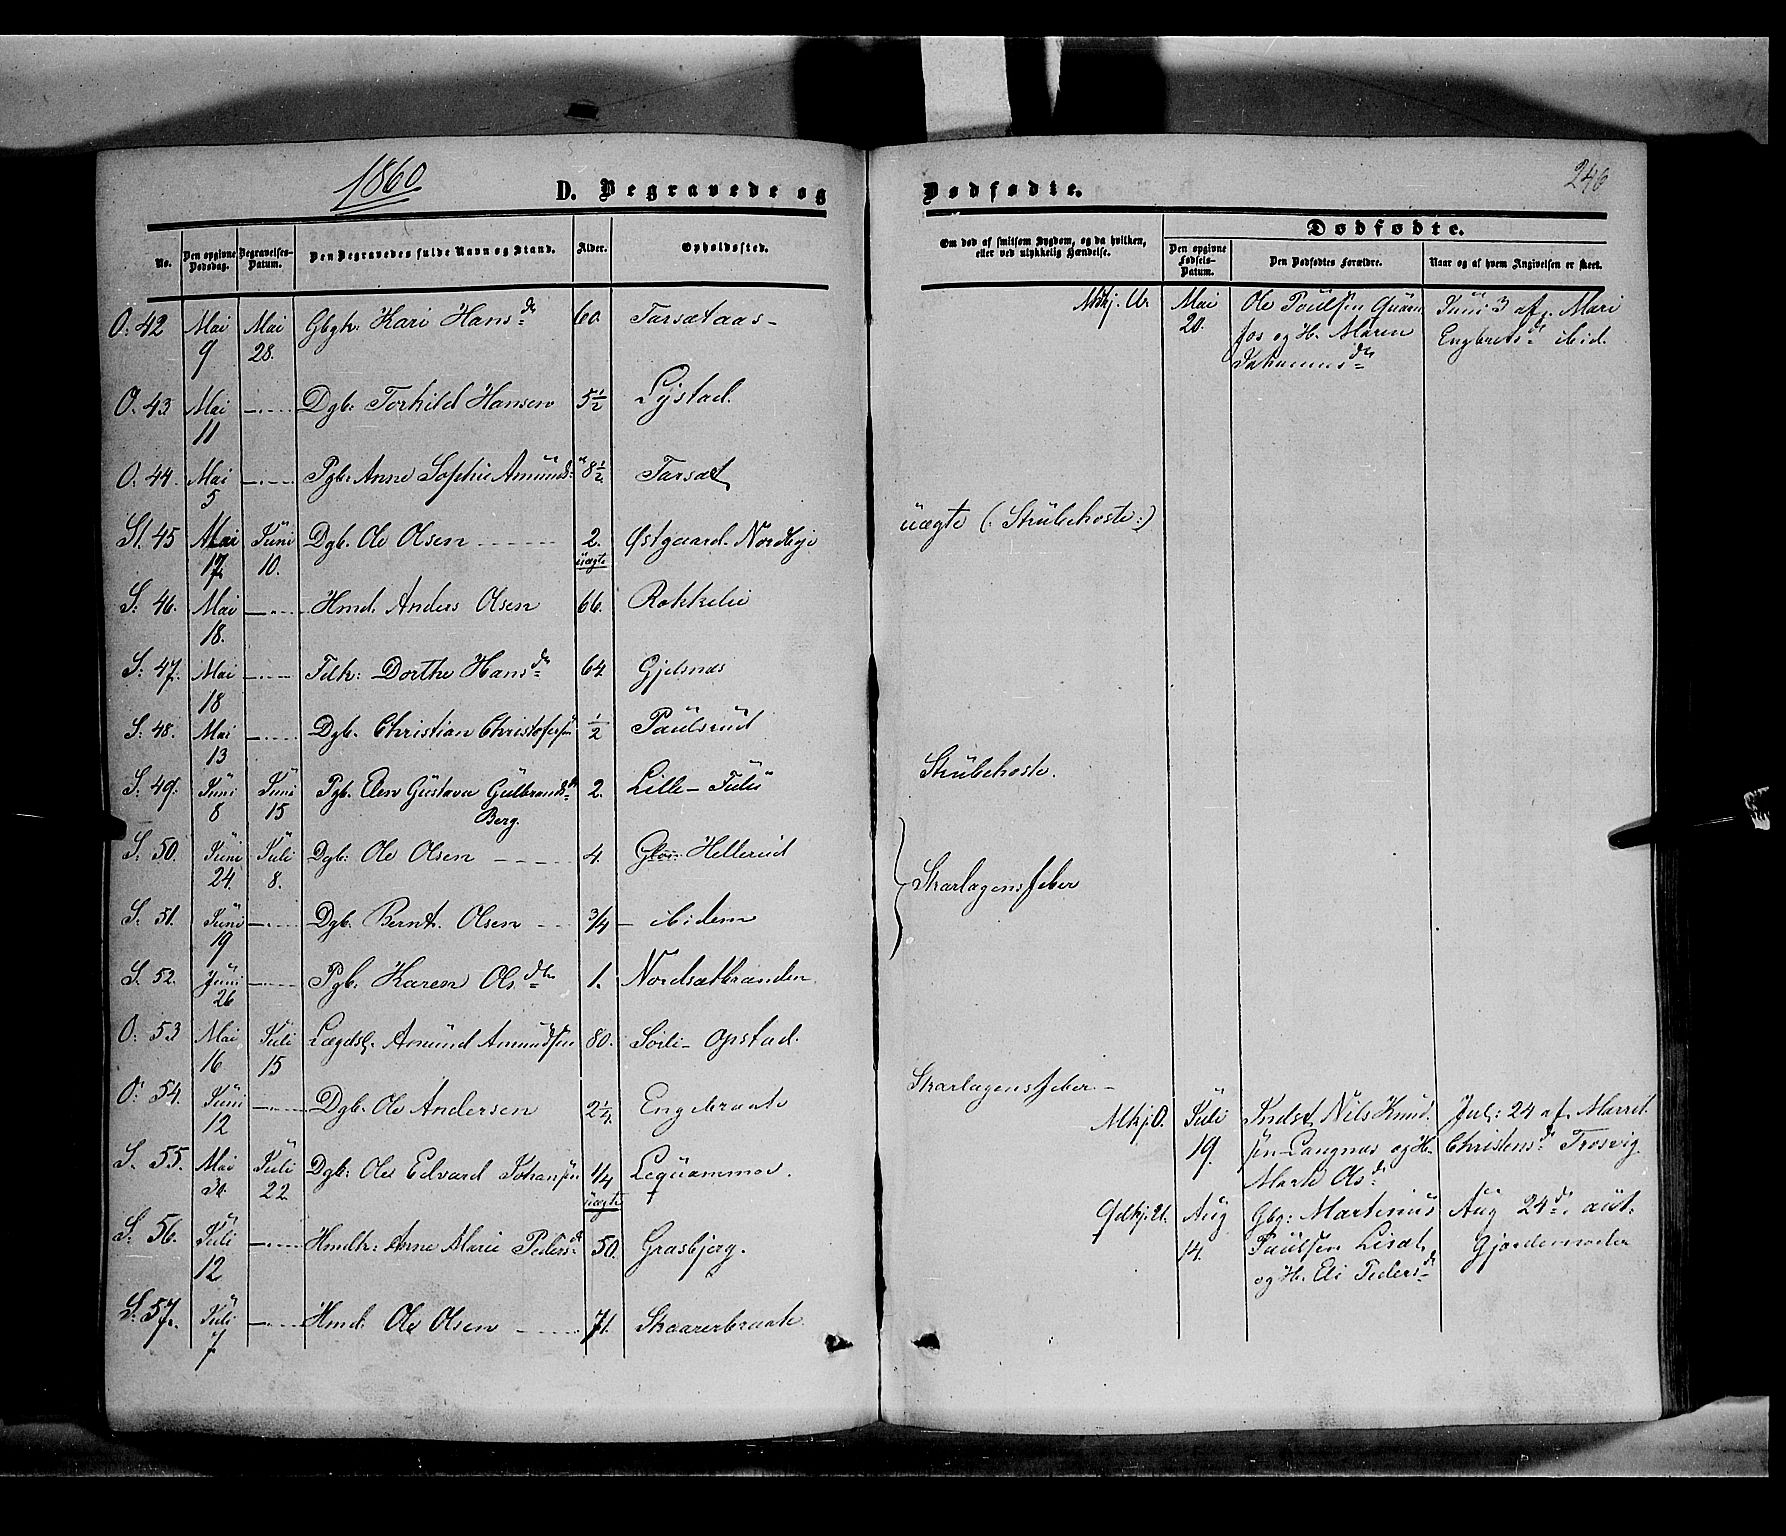 1860
D. Begravede og
No.
Den opgivne Dødsdag.
Begravelses-Datum.
Den Begravedes fulde Navn og Stand.
Alder.
Opholdssted.
O: 42 Mai 9 Mai 28. Gbgk: Kari Hansdr 60. Tarsætaas
O. 43 Mai 11 Dgb: Torkild Hansen 5 1/2 Lystad.
O. 44. Mai 5 Pgb. Anne Sophie Amunds 8 1/2 Tarsæt
St. 45 Mai 17. Juni 10. Dgb. Ole Olsen 2. uægte Østgaard Nordbye
S: 46. Mai 18. Hmd. Anders Olsen 66. Rokkelie
S: 47. Mai 18 Fdk: Dorthe Hansdr 64 Gjelsnæs
S: 48. Mai 13 Dgb. Christian Christofersen 1/2 Paulsrud
S: 49. Juni 8 Juni 15 Pgb. Elen Gustava Gulbrandsd Berg. 2. Lille-
S: 50. Juni 24. Juli 8. Dgb: Ole Olsen 4. Hellerud
S. 51. Juni 19 Dgb. Bernt. Olsen 3/4 ibidem
S. 52. Juni 26 Pgb. Karen Olsdtr 1. Nordsætbraaden
O: 53 Mai 16 Juli 15 Lægdsl. Amund Amundsen 80. Sörli- Opstad.
O: 54. Juni 12 Dgb. Ole Andersen 2 1/4. Engebraate
S. 55. Mai Juli 22 Dgb: Ole Edvard Johansen 1/4 uægte Lequammen.
S. 56. Juli 12 Hmdk: Anne Marie Pedersd 50. Grasbjerg.
S: 57. Juli 7 Hmd. Ole Olsen 71. Skaarerbraate
Dødfødte.
246
Om død af smitsom Sygdom, og da hvilken, eller ved ulykkelig Hændelse.
Dødfødte.
Den opgivne Fødsels-Datum.
Den Dødfødtes Forældre.
Naar og af hvem Angivelsen er skeet.
Mkj. U. Mai 20. Ole Poulsen Quarn
fos og H. Maren
Johannesdr
Juni 3 af. Mari
Engbretsd ibid.
uægte (: Strubehoste:)
Strubehoste.
Skarlagensfeber
Skarlagensfeber.
Mkj. O. Juli 19. Indst. Nils Knud
sen Langnæs og H.
Marte Olsd
Jul: 24 af. Marret
Christensd Trosvig.
Qdkj. U. Aug 14. Gbg: Martinus
Paulsen Lisæt
og H. Eli Pedersd
Aug 24d. aut.
Gjordemoder